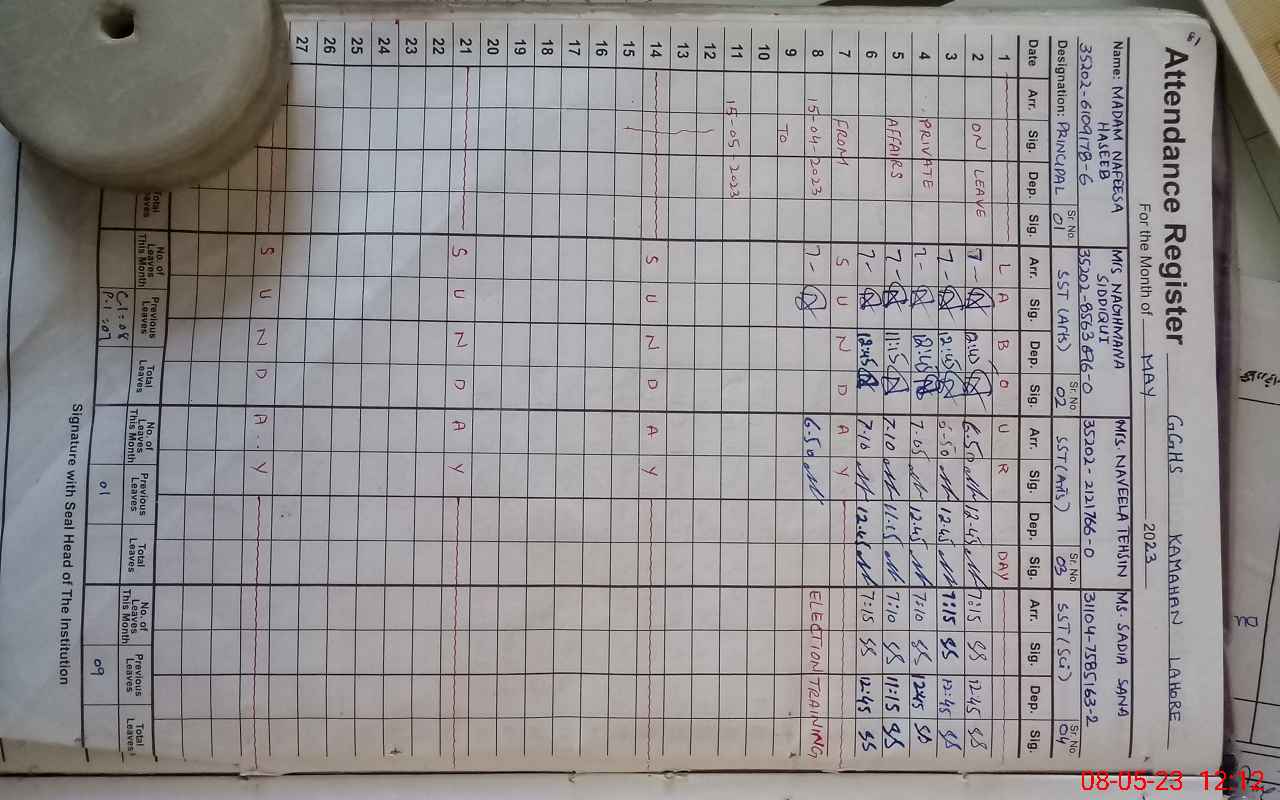 Attendance Register GGHS KAMAHAN LAHORE
For the Month of MAY 2023
Name: MADAM NAFEESA HASEEB Mrs NAGHMANA SIDDIQUI Mrs. NAVEELA TEHSIN Ms. SADIA SANA
35202-6109178-6 35202-0563696-0 35202-2121766-0 31104-7585163-2
Designation: PRINCIPAL Sr. No. 01 SST (Arts) Sr. No. 02 SST (Arts) Sr. No. 03 SST (Sci) Sr. No. 04
Date Arr. Sig. Dep. Sig. Arr. Sig. Dep. Sig. Arr. Sig. Dep. Sig. Arr. Sig. Dep. Sig.
1 LABOUR DAY
2 ON LEAVE 7- 12:45 6.50 12.45 7:15 SS 12:45 SS
3 7- 12:45 6.50 12.45 7:15 SS 12:45 SS
4 PRIVATE 7- 12:45 7.05 12.45 7:10 SS 12:45 SS
5 AFFAIRS 7- 11:15 7.10 11.15 7:10 SS 11:15 SS
6 7- 12:45 7.10 12.45 7:15 SS 12:45 SS
7 FROM SUNDAY
8 15-04-2023 7- 6.50 ELECTION TRAINING
9 TO
10
11 15-05-2023
12
13
14 SUNDAY
15
16
17
18
19
20
21 SUNDAY
22
23
24
25
26
27
SUNDAY
Total Leaves No. of Leaves This Month Previous Leaves Total Leaves No. of Leaves This Month Previous Leaves Total Leaves No. of Leaves This Month Previous Leaves Total Leaves
C.l = 08 01 09
P.l = 07
Signature with Seal Head of The Institution
08-05-23 12:12